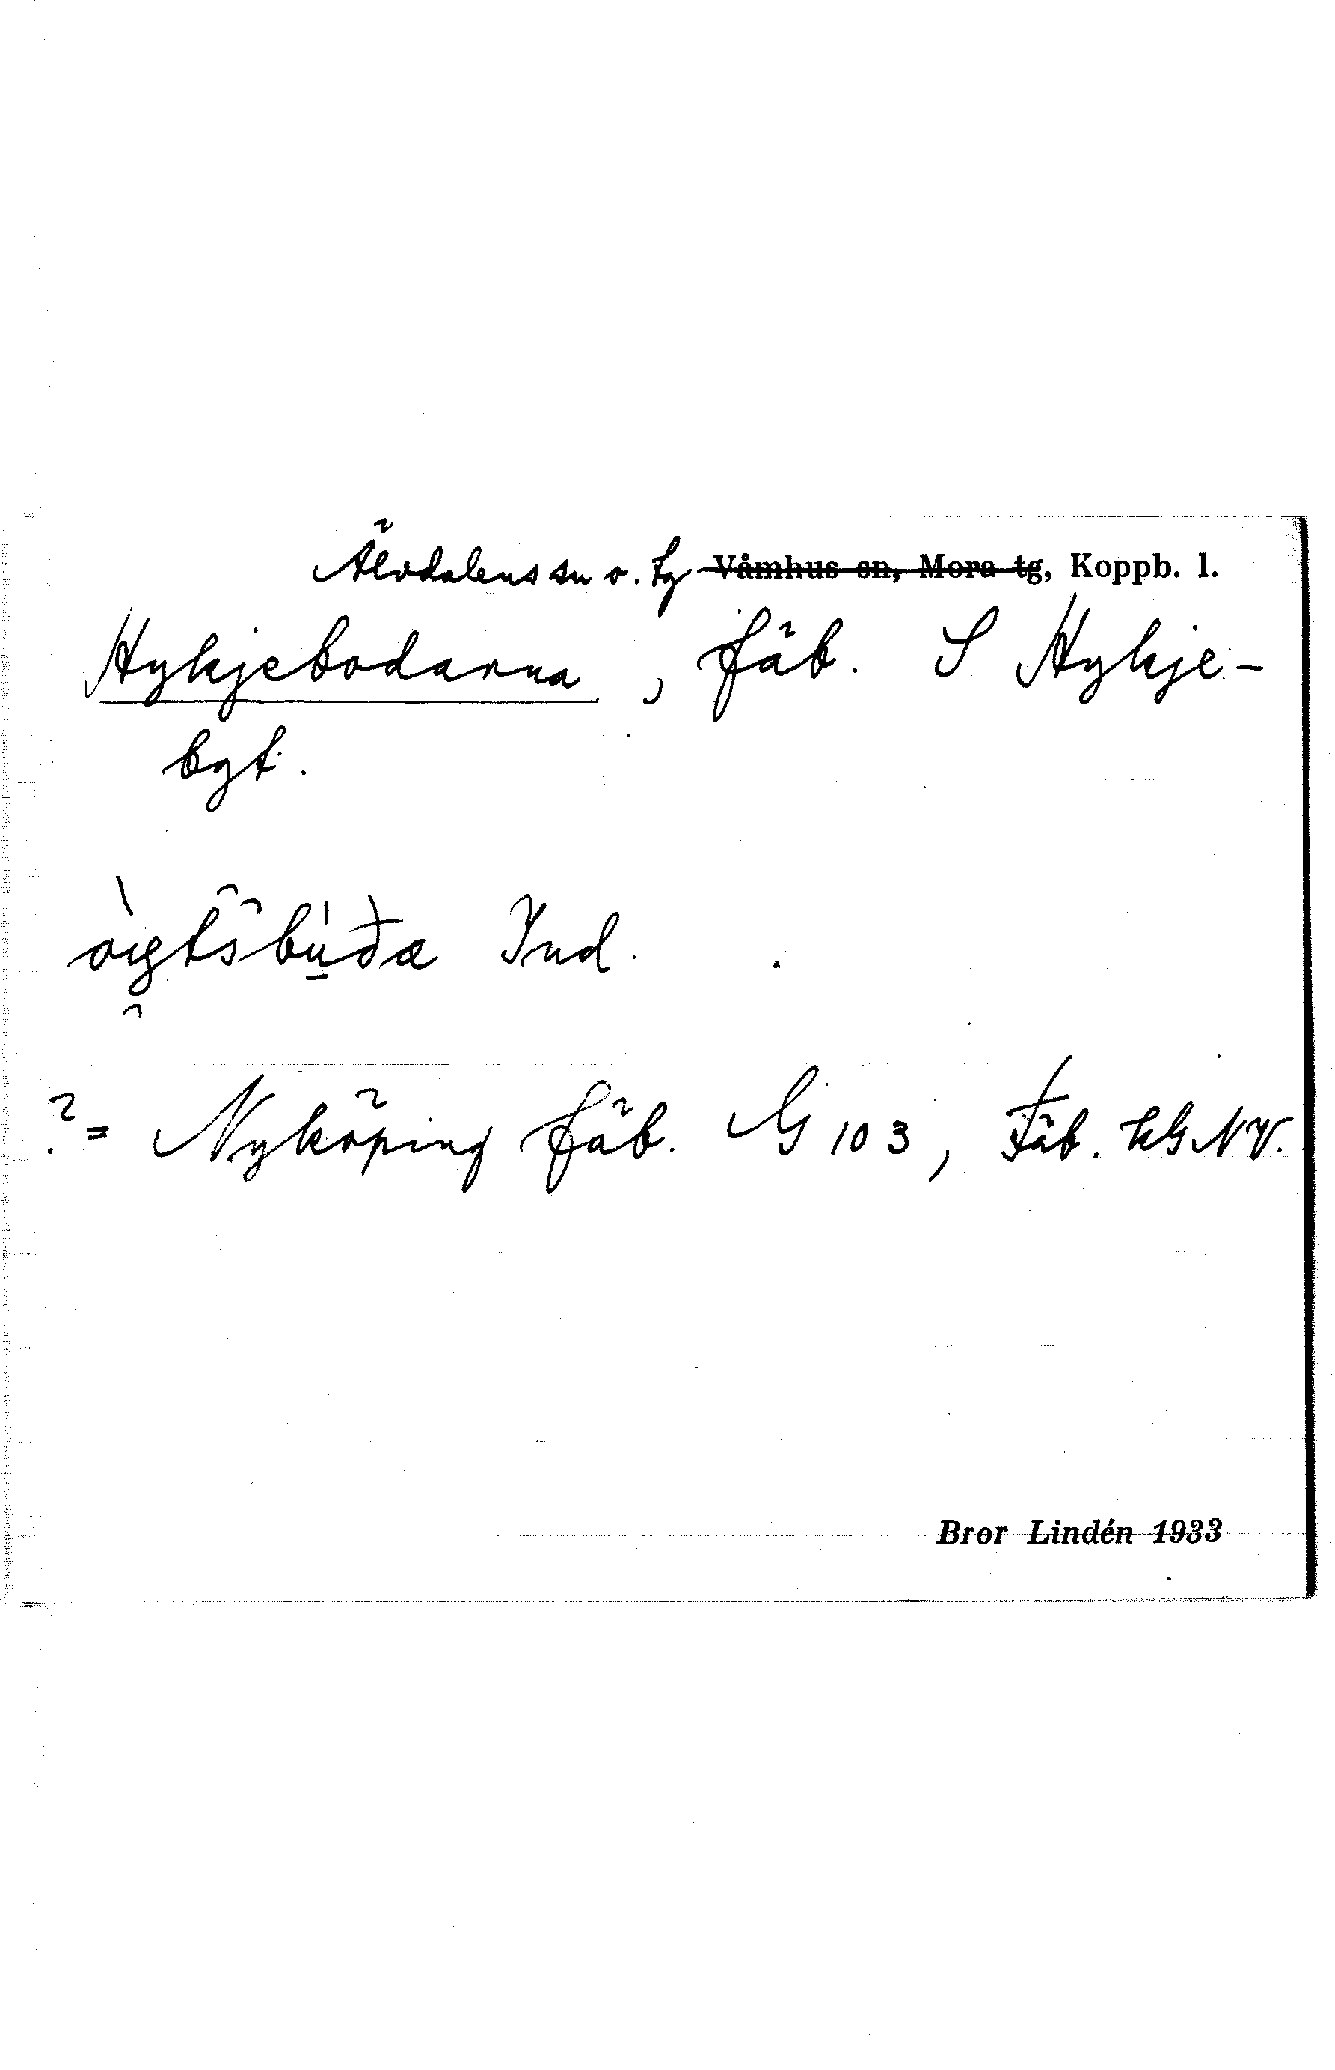 Älvdalens sn o. tg Våmhus sn, Mora tg, Koppb. l.
Hykjebodarna, fäb. S Hykje-
byt.
Ind.
?= Nyköping fäb. G 103, Fäb. kG NV.
Bror Lindén 1933